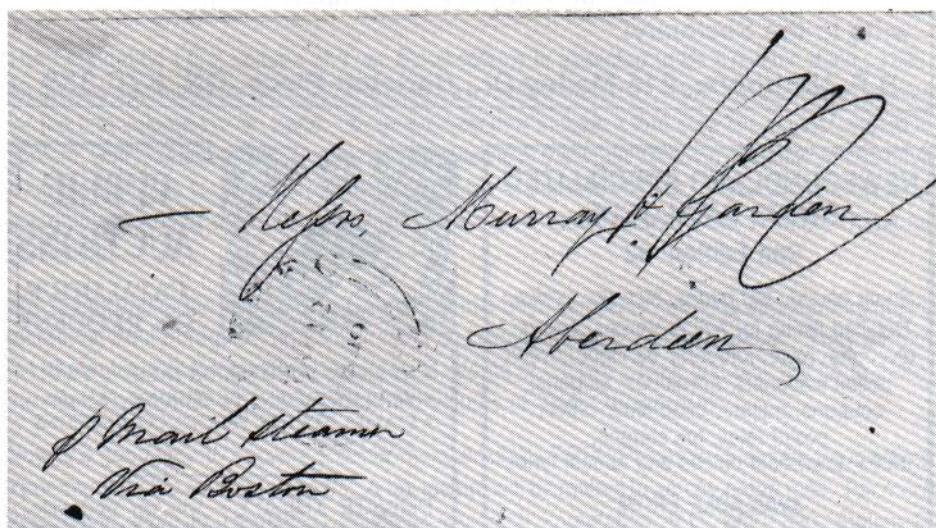 — Messrs, Murray & Garden
Aberdeen
p Mail Steamer
Via Boston